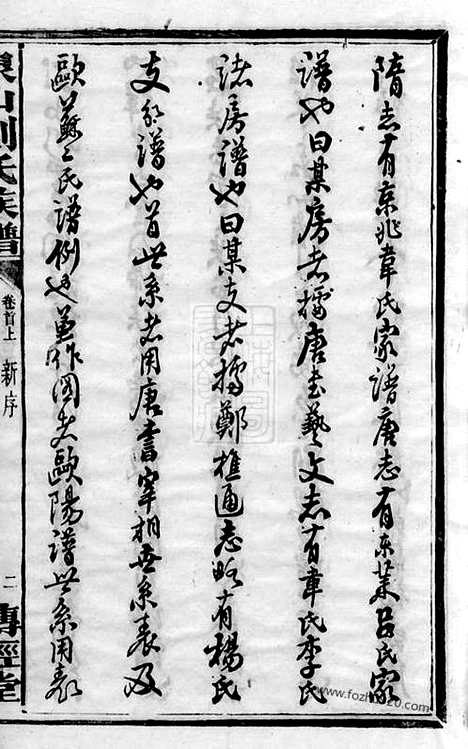 隋志有京兆韋氏家譜唐志有東萊呂氏家
譜也曰某房者據唐書藝文志有韋氏李氏
諸房譜也曰某支者據鄭樵通志略有楊氏
支分譜也首世系者用唐書宰相世系表及
歐蘇二氏譜例也兼作圖者歐陽譜世系用表
山劉氏族譜
卷首上 新序
二
傳經堂
www.fozhu920.com